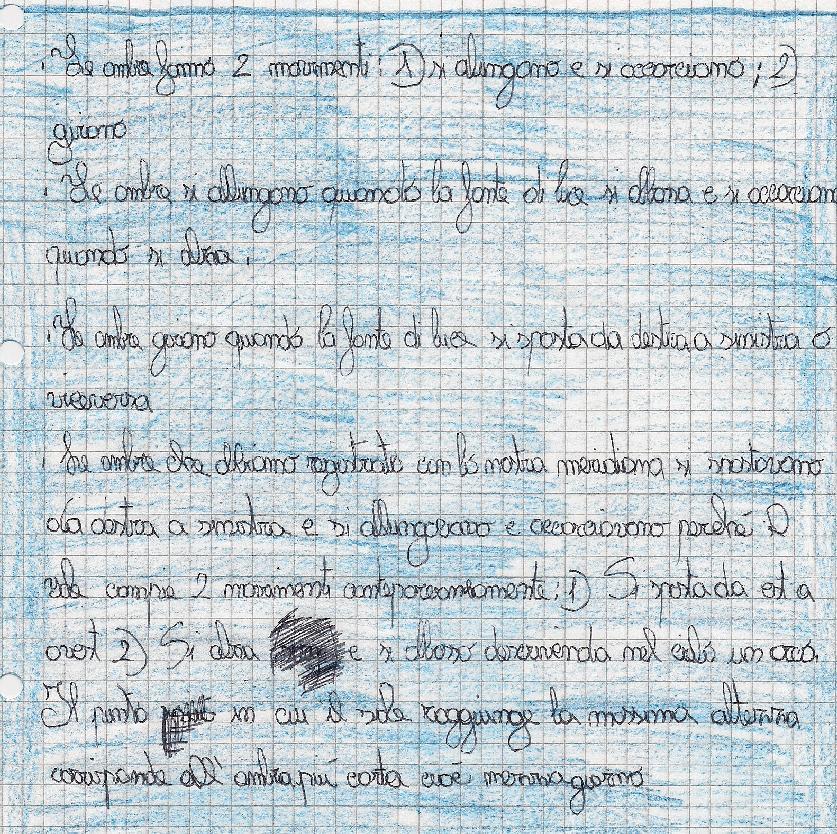 . Le ombre fanno 2 movimenti: 1) si allungano e si accorciano; 2)
girano
. Le ombre si allungano quando la fonte di luce si abbassa e si accorciano
quando si alza.
. Le ombre girano quando la fonte di luce si sposta da destra a sinistra o
viceversa
. Le ombre che abbiamo registrato con la nostra meridiana si spostavano
da destra a sinistra e si allungavano e accorciavano perché il
sole compie 2 movimenti contemporaneamente: 1) Si sposta da est a
ovest 2) Si alza e si abbassa descrivendo nel cielo un arco.
Il punto in cui il sole raggiunge la massima altezza
corrisponde all'ombra più corta cioè mezzogiorno